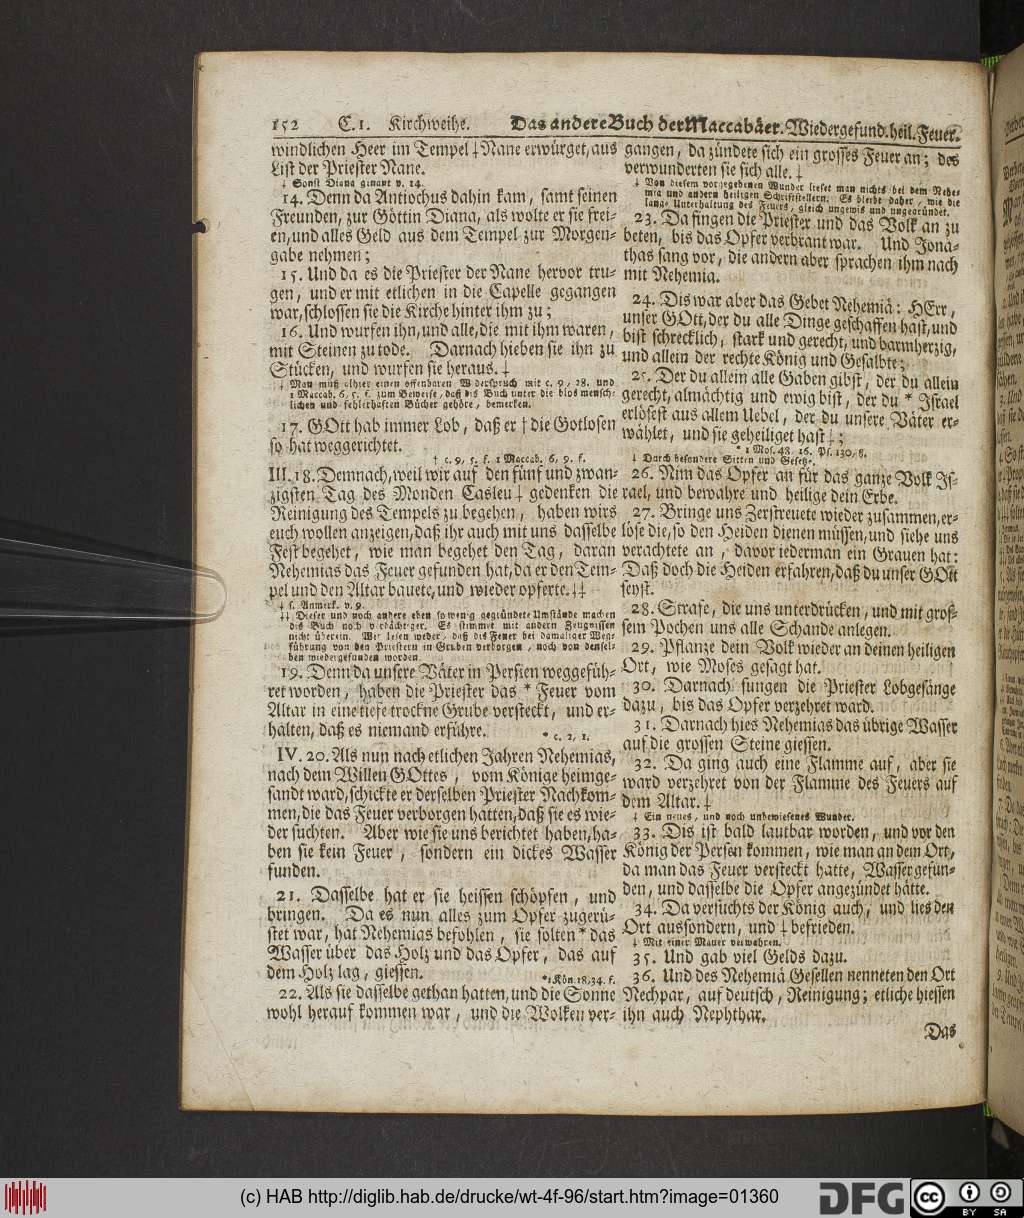 152 C. 1. Kirchweihe. Das andere Buch der Maccabäer. Wiedergefund. heil. Feuer.
windlichen Heer im Tempel ‡ Nane erwürget, aus
List der Priester Nane.
‡ Sonst Diana genant v. 14.
14. Denn da Antiochus dahin kam, samt seinen
Freunden, zur Göttin Diana, als wolte er sie frei-
en, und alles Geld aus dem Tempel zur Morgen-
gabe nehmen;
15. Und da es die Priester der Nane hervor tru-
gen, und er mit etlichen in die Capelle gegangen
war, schlossen sie die Kirche hinter ihm zu;
16. Und wurfen ihn, und alle, die mit ihm waren,
mit Steinen zu tode. Darnach hieben sie ihn zu
Stücken, und wurfen sie heraus. ‡
‡ Man muß alhier einen offenbaren Widerspruch mit c. 9, 28. und
1 Maccab. 6, 5. f. zum Beweise, daß dis Buch unter die blos mensch-
lichen und fehlerhaften Bücher gehöre, bemerken.
17. GOtt hab immer Lob, daß er † die Gotlosen
so hat weggerichtet.
† c. 9, 5. f. 1 Maccab. 6, 9. f.
III. 18. Demnach, weil wir auf den fünf und zwan-
zigsten Tag des Monden Casleu ‡ gedenken die
Reinigung des Tempels zu begehen, haben wirs
euch wollen anzeigen, daß ihr auch mit uns dasselbe
Fest begehet, wie man begehet den Tag, daran
Nehemias das Feuer gefunden hat, da er den Tem-
pel und den Altar bauete, und wieder opferte. ‡‡
‡ s. Anmerk. v. 9.
‡‡ Dieser und noch andere eben so wenig gegründete Umstände machen
dis Buch noch verdächtiger. Es stimmet mit andern Zeugnissen
nicht überein. Wir lesen weder, daß dis Feuer bei damaliger Weg-
führung von den Priestern in Gruben verborgen, noch von densel-
ben wiedergefunden worden.
19. Denn da unsere Väter in Persien weggefüh-
ret worden, haben die Priester das * Feuer vom
Altar in eine tiefe trockne Grube versteckt, und er-
halten, daß es niemand erführe. * c. 2, 1.
IV. 20. Als nun nach etlichen Jahren Nehemias,
nach dem Willen GOttes, vom Könige heimge-
sandt ward, schickte er derselben Priester Nachkom-
men, die das Feuer verborgen hatten, daß sie es wie-
der suchten. Aber wie sie uns berichtet haben, ha-
ben sie kein Feuer, sondern ein dickes Wasser
funden.
21. Dasselbe hat er sie heissen schöpfen, und
bringen. Da es nun alles zum Opfer zugerü-
stet war, hat Nehemias befohlen, sie solten * das
Wasser über das Holz und das Opfer, das auf
dem Holz lag, giessen. * 1 Kön. 18, 34. f.
22. Als sie dasselbe gethan hatten, und die Sonne
wohl herauf kommen war, und die Wolken ver-
gangen, da zündete sich ein grosses Feuer an; des
verwunderten sie sich alle. ‡
‡ Von diesem vorgegebenen Wunder lieset man nichts bei dem Nehe-
mia und andern heiligen Schriftstellern. Es bleibt daher, wie die
lange Unterhaltung des Feuers, gleich ungewis und ungegründet.
23. Da fingen die Priester und das Volk an zu
beten, bis das Opfer verbrant war. Und Jona-
thas sang vor, die andern aber sprachen ihm nach
mit Nehemia.
24. Dis war aber das Gebet Nehemiä: HErr,
unser GOtt, der du alle Dinge geschaffen hast, und
bist schrecklich, stark und gerecht, und barmherzig,
und allein der rechte König und Gesalbte;
25. Der du allein alle Gaben gibst, der du allein
gerecht, almächtig und ewig bist, der du * Israel
erlösest aus allem Uebel, der du unsere Väter er-
wählet, und sie geheiliget hast ‡;
* 1 Mos. 48, 16. Ps. 130, 8.
‡ Durch besondere Sitten und Gesetze.
26. Nim das Opfer an für das ganze Volk Is-
rael, und bewahre und heilige dein Erbe.
27. Bringe uns Zerstreuete wieder zusammen, er-
löse die, so den Heiden dienen müssen, und siehe uns
verachtete an, davor iederman ein Grauen hat:
Daß doch die Heiden erfahren, daß du unser GOtt
seyst.
28. Strafe, die uns unterdrücken, und mit gros-
sem Pochen uns alle Schande anlegen.
29. Pflanze dein Volk wieder an deinen heiligen
Ort, wie Moses gesagt hat.
30. Darnach sungen die Priester Lobgesänge
dazu, bis das Opfer verzehret ward.
31. Darnach hies Nehemias das übrige Wasser
auf die grossen Steine giessen.
32. Da ging auch eine Flamme auf, aber sie
ward verzehret von der Flamme des Feuers auf
dem Altar. ‡
‡ Ein neues, und noch unbewiesenes Wunder.
33. Dis ist bald lautbar worden, und vor den
König der Persen kommen, wie man an dem Ort,
da man das Feuer versteckt hatte, Wasser gefun-
den, und dasselbe die Opfer angezündet hätte.
34. Da versuchts der König auch, und lies den
Ort aussondern, und ‡ befrieden.
‡ Mit einer Mauer verwahren.
35. Und gab viel Gelds dazu.
36. Und des Nehemiä Gesellen nenneten den Ort
Nechpar, auf deutsch, Reinigung; etliche hiessen
ihn auch Nephthar.
Das
(c) HAB http://diglib.hab.de/drucke/wt-4f-96/start.htm?image=01360
DFG
cc
BY SA